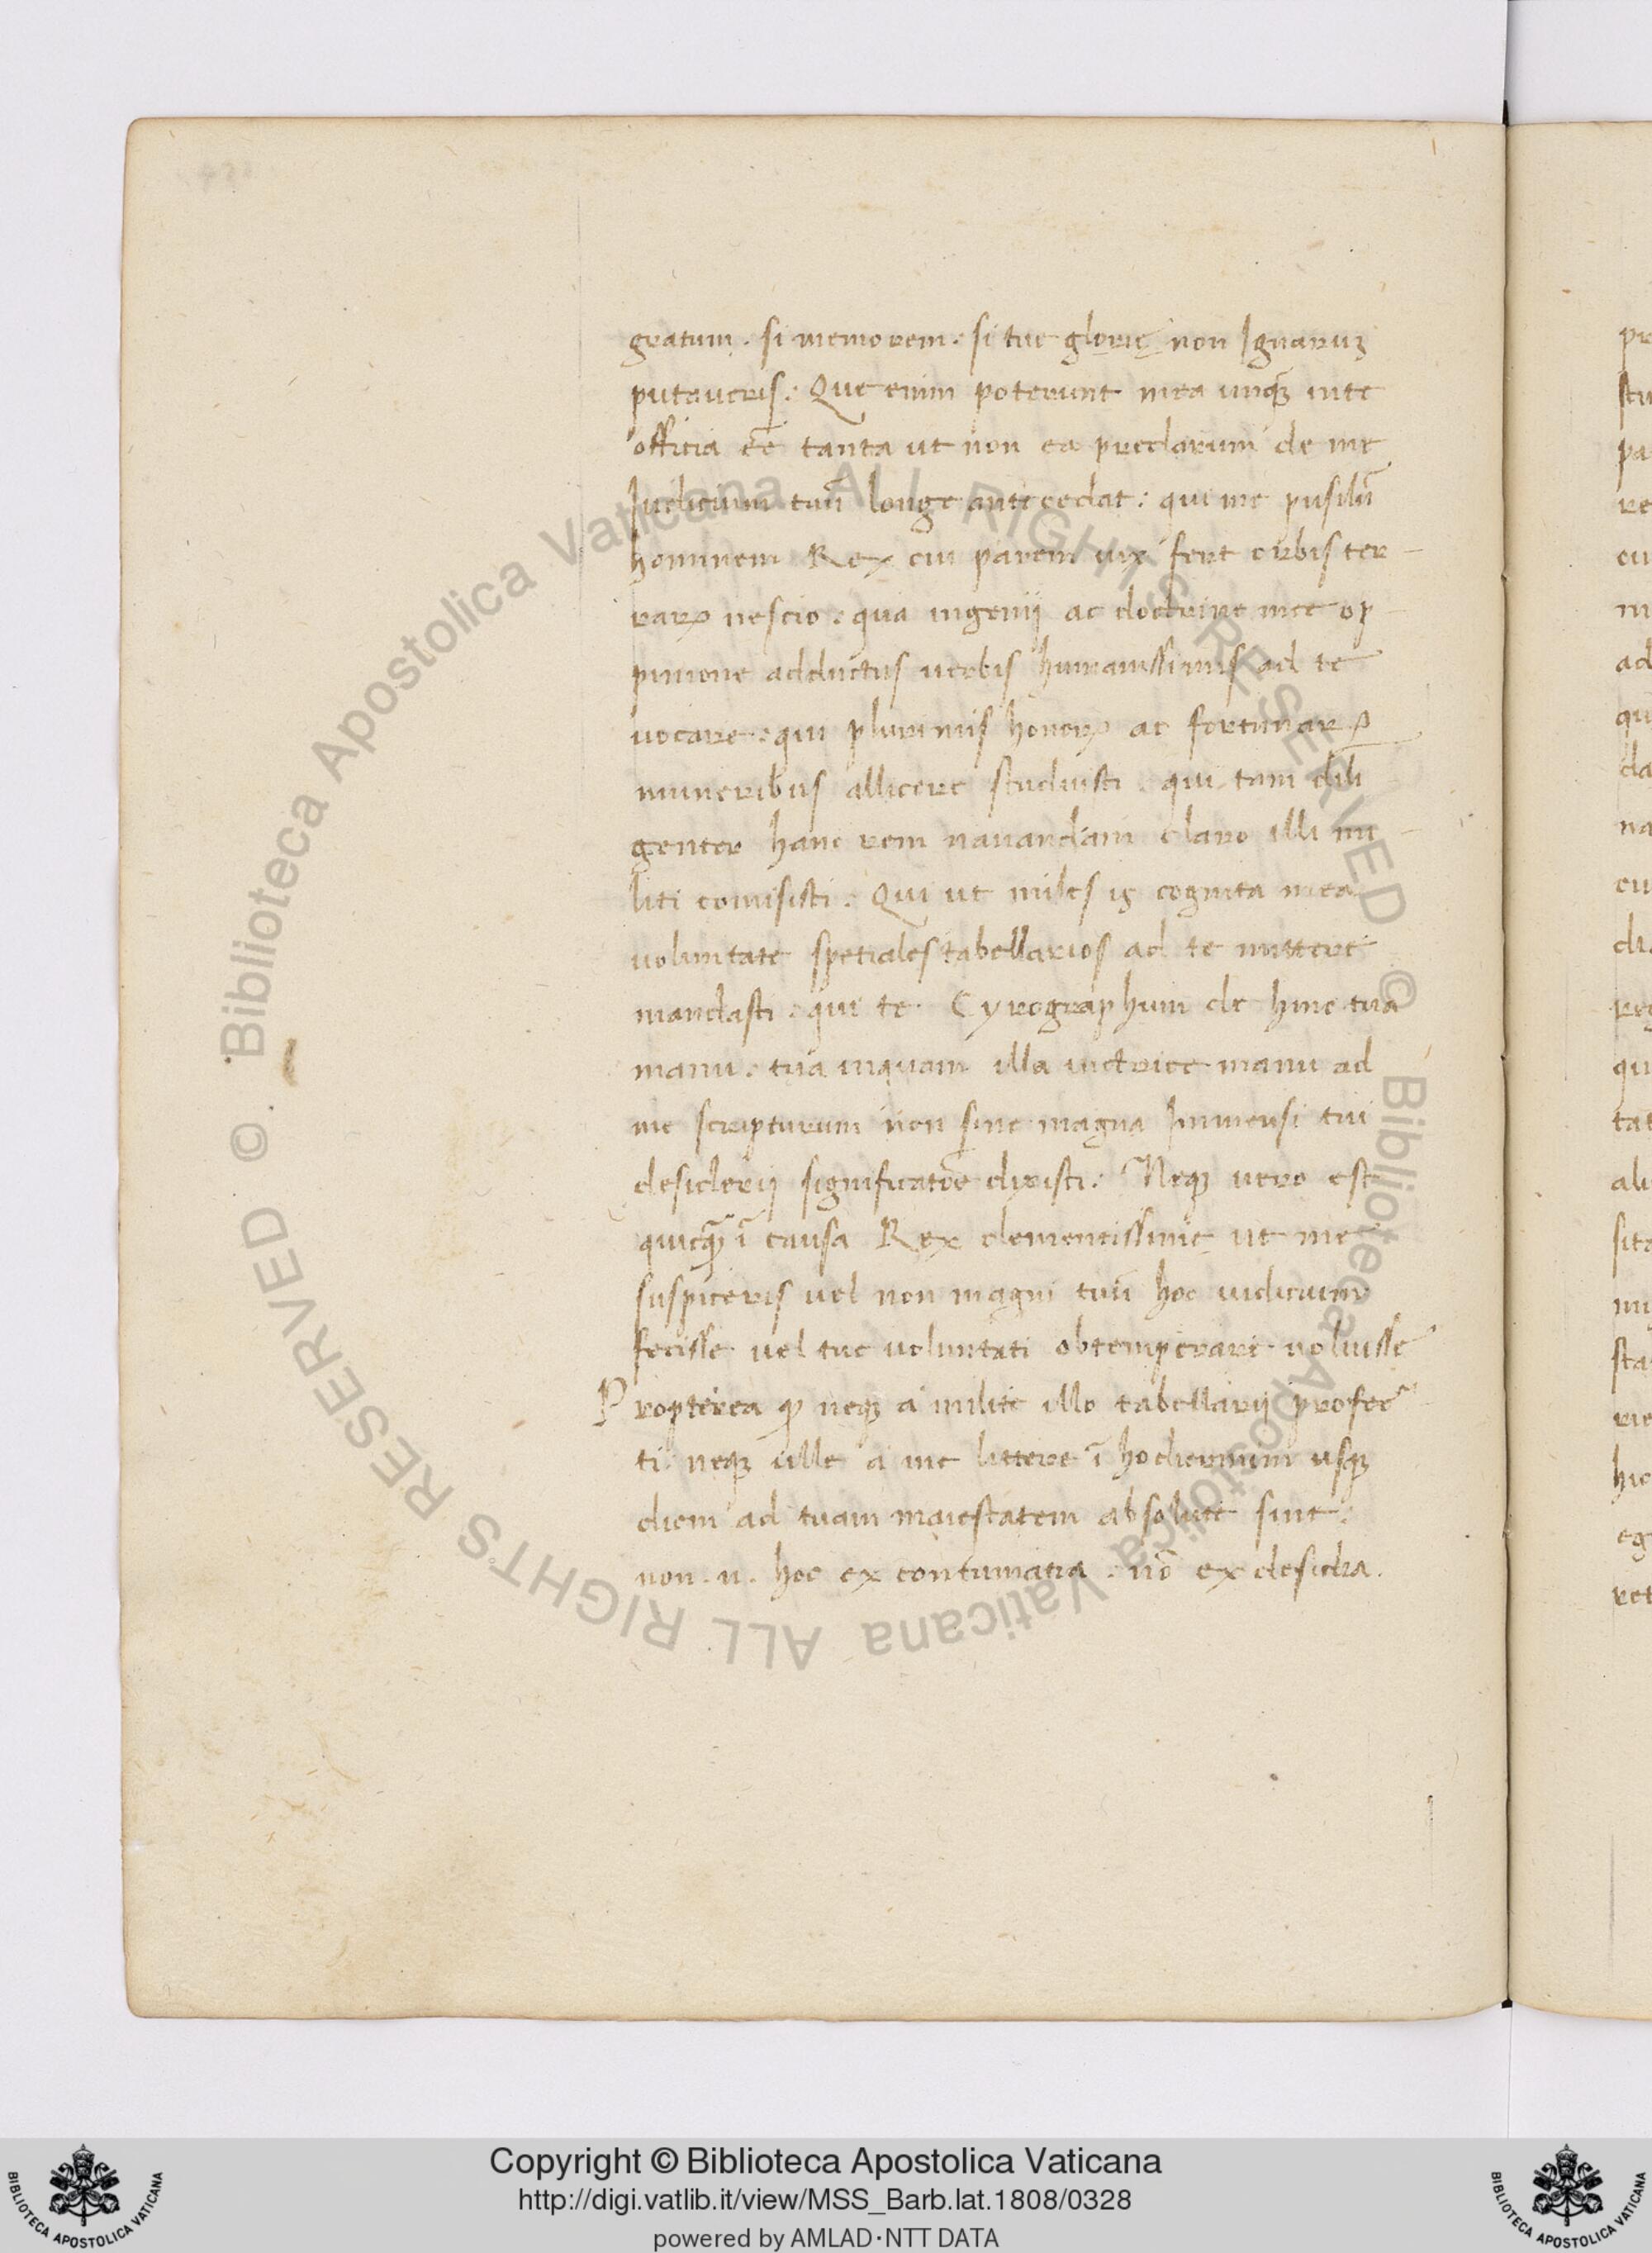 gratum . si memorem . si tue glorię non Ignaruʒ
putaveris : Que enim poterunt mea unqꝫ in te
officia eē tanta ut non ea preclarum de me
Iudicium tuū longe antecedat : qui me pusilū
hominem Rex cui parem vix fert orbis ter-
rarꝝ nescio . qua ingenij ac doctrine mee op-
pinione adductus verbis humanissimis ad te
vocare . qui plurimis honorꝝ ac fortunarꝝ
muneribus allicere studuisti . qui tam dili
genter hanc rem navandam claro illi mi-
liti comisisti . Qui ut miles is cognita mea
voluntate spetiales tabellarios ad te mittere
mandasti . qui te . Cyrographum de hinc tua
manu . tua inquam illa victrice manu ad
me scripturum non sine magna Immensi tui
desiderij significatōe dixisti : Neqꝫ vero est
quicqꝫ ī causa Rex clementissime ut me
suspiceris vel non magni tuū hoc iudicium
fecisse vel tue voluntati obtemperare noluisse
Propterea ꝙ neqꝫ a milite illo tabellarij profec
ti neqꝫ ille a me littere ī hodiernum usqꝫ
diem ad tuam maiestatem absolute sint :
non . n . hoc ex contumatia . nō ex desidia .
pr
stu
pa
re
cu
m
ad
qu
da
na
cu
dr
reg
qu
tat
ali
sit
mi
sta
rie
hic
eg
ret
© Biblioteca Apostolica Vaticana ALL RIGHTS RESERVED © Biblioteca Apostolica Vaticana ALL RIGHTS RESERVED
Copyright © Biblioteca Apostolica Vaticana
http://digi.vatlib.it/view/MSS_Barb.lat.1808/0328
powered by AMLAD·NTT DATA
BIBLIOTECA APOSTOLICA VATICANA
BIBLIOTECA APOSTOLICA VATICANA